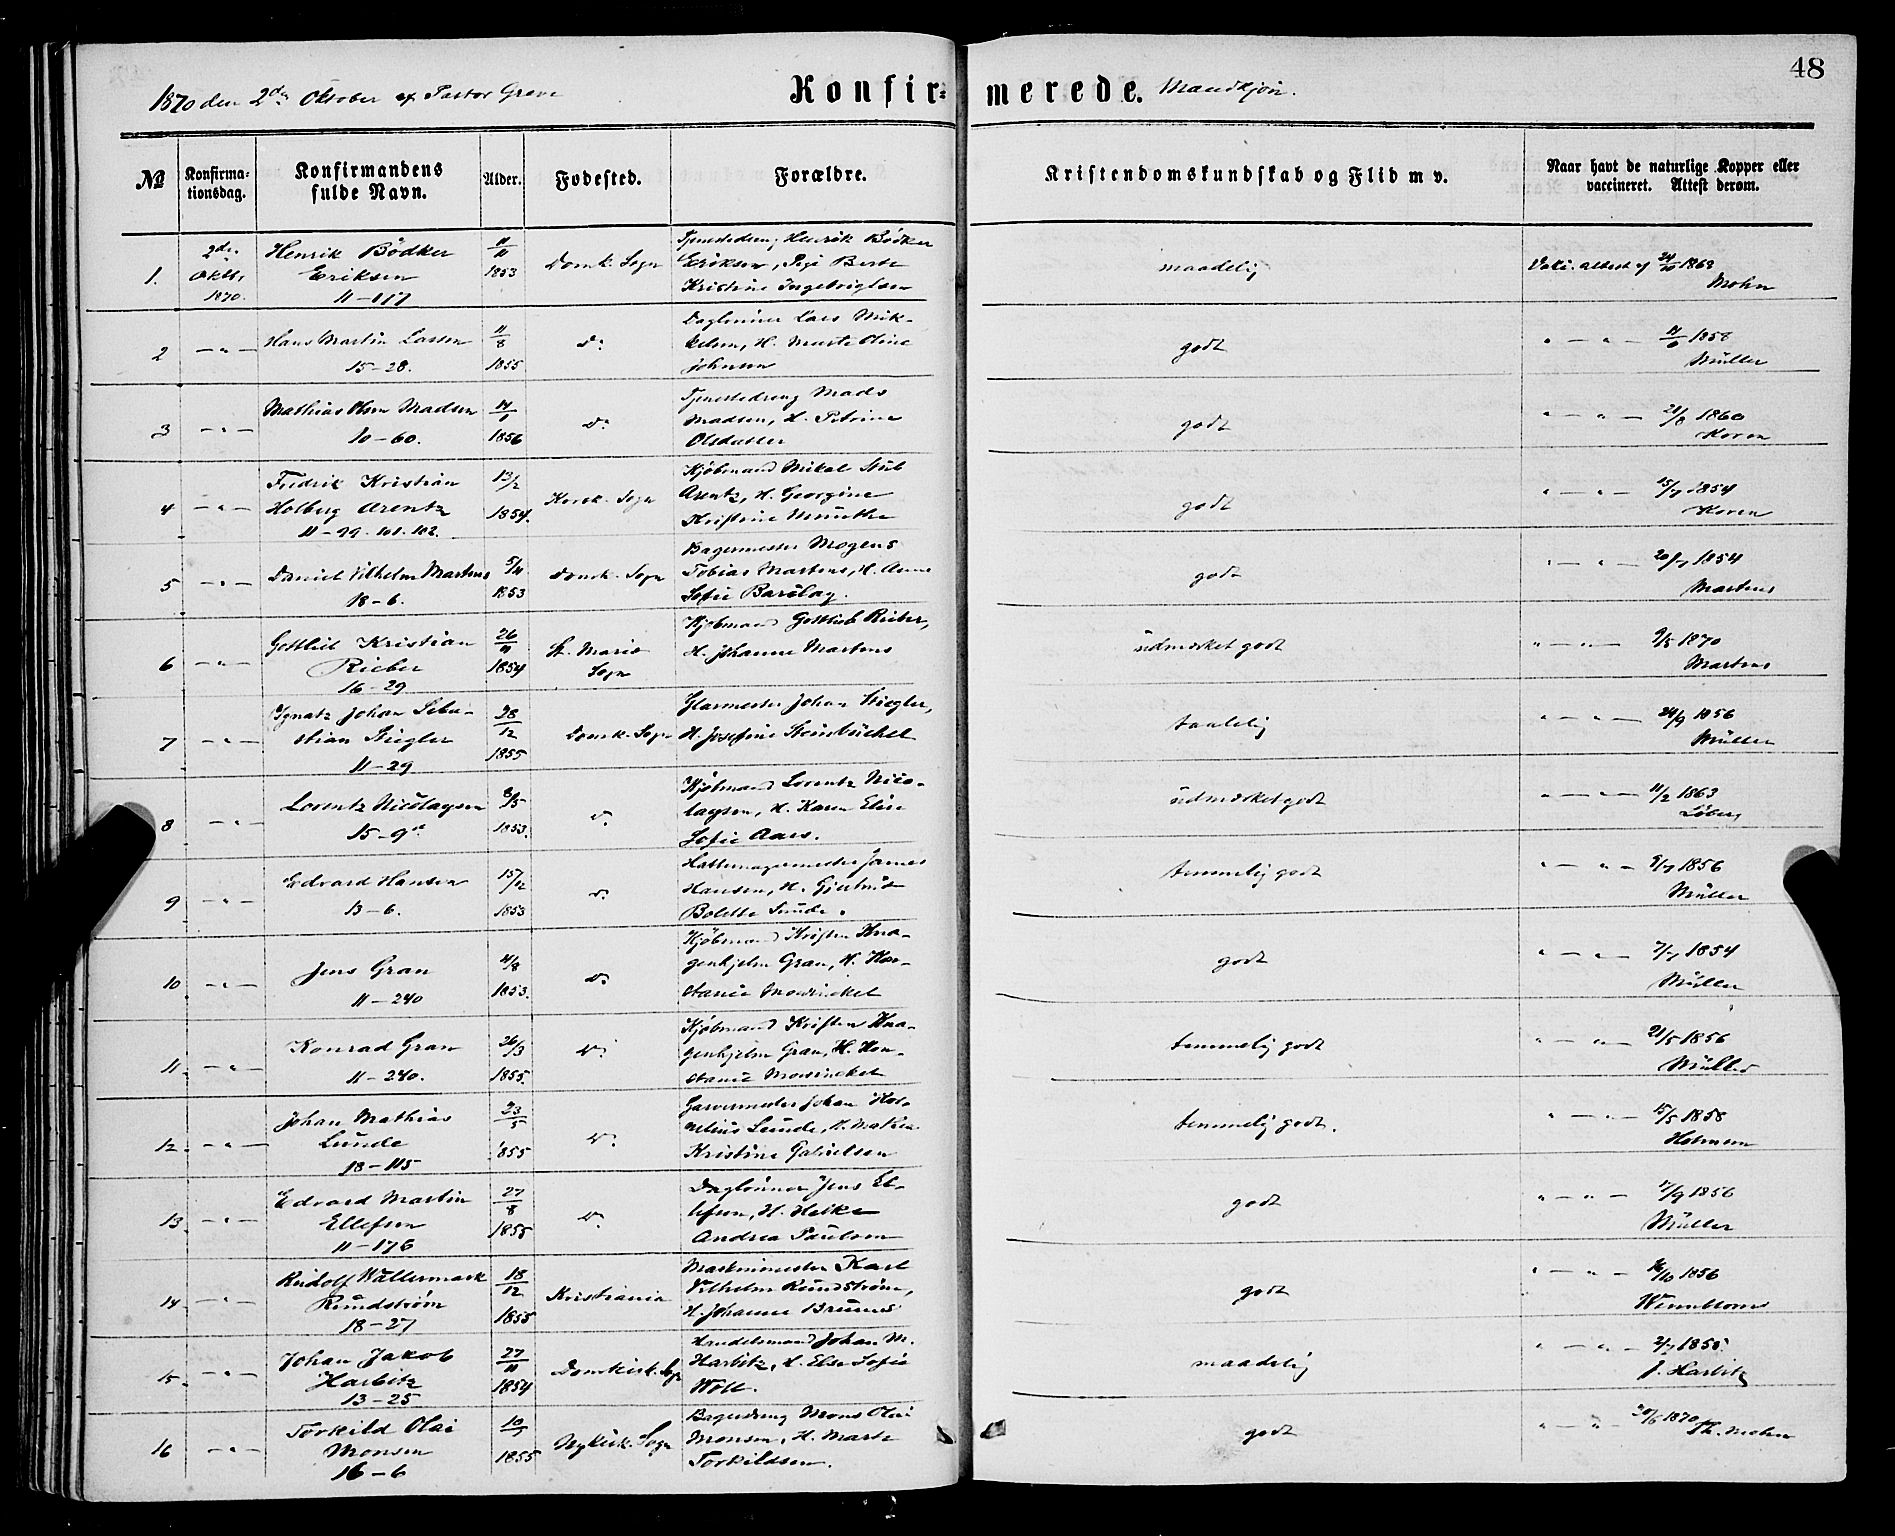 48
1870 den 2den Oktober af Pastor Greve
Konfir= merede. Mandkjøn.
№ Konfirma-tionsdag. Konfirmandens fulde Navn. Alder. Fødested. Forældre. Kristendomskundskab og Flid m v. Naar havt de naturlige Kopper eller vaccineret. Attest derom.
1. 2den Oktb. 1870.
Henrik Bödker
Eriksen
11-117
1853
Domk. Sogn
Tjenestedreng Henrik Bödker
Eriksen, Pige Berte
Kristine Ingebrigtsen
maadelig
Vaki. attest af 1868
Mohn
2 -"-
Hans Martin Larsen
15-28.
11/8 1855
Do
Daglönner Lars Mik-
kelsen, H. Marte Oline
Johnsen
godt
" - " - 1858
Müller
3 -"-
Mathias Olsen Madsen
10-60.
1856
Do
Tjenestedreng Mads
Madsen, H. Petrine
Olsdatter
godt
" - " - 21/8 1860
Koren
4 -"-
Fredrik Kristian
Holberg Arentz
11-99.101.102.
13/2 1854.
Korsk. Sogn
Kjöbmand Mikal Stub
Arentz, H. Georgine
Kristine Munthe
godt
" - " - 15/7 1854
Koren
5 -"-
Daniel Vilhelm Martens
18-6.
5/11 1853
Domk. Sogn
Bagermester Mogens
Tobias Martens, H. Anne
Sofie Barclay.
godt
" - " - 20/7 1854
Martens
6 -"-
Gottlieb Kristian
Rieber
16-29
26/11 1854
St. Marie
Sogn
Kjöbmand Gottlieb Rieber,
H. Johanne Martens
udmærket godt
" - " - 9/5 1870
Martens
7 -"-
Ignatz Johan Seba-
stian Stiegler
11-29
28/12 1855
Domk. Sogn
Glarmester Johan Stiegler,
H. Josefine Steinbüchel
taalelig
" - " - 24/9 1856
Müller
8 -"-
Lorentz Nicolaysen
15-9a
8/5 1853.
Do
Kjöbmand Lorentz Nico-
laysen, H. Karen Elise
Sofie Aars.
udmærket godt
" - " - 11/2 1863
Löberg
9 -"-
Edvard Hansen
13-6.
15/12 1853
Do
Hattemagermester James
Hansen, H. Gjertrud
Bolette Sunde.
temmelig godt
" - " - 9/7 1856
Müller
10 -"-
Jens Gran
11-240
4/8 1853.
Do
Kjöbmand Kristen Kna-
genhjelm Gran, H. Kon-
stance Mowinckel
godt
" - " - 7/7 1854
Müller
11. -"-
Konrad Gran
11-240.
26/3 1855.
Do
Kjöbmand Kristen Kna-
genhjelm Gran, H. Kon-
stance Mowinckel
temmelig godt
" - " - 21/5 1856
Müller
12. -"-
Johan Mathias
Lunde
18-115
23/5 1855
Do
Garvermester Johan Kor-
nelius Lunde, H. Mathea
Kristine Gabrielsen
temmelig godt.
" - " - 15/5 1858
13. -"-
Edvard Martin
Ellefsen
11-176
27/8 1855
Do
Daglönner Jens El-
lefsen, H. Heike
Andrea Paulsen
godt
" - " - 1856
Müller
14. -"-
Rudolf Wallermark
Rundström
18-27
18/12 1855
Kristiania
Maskinmester Karl
Vilhelm Rundström,
H. Johanne
godt
" - " - 16/10 1856
15. -"-
Johan Jakob
Harbitz
13-25
27/11 1854
Domkirk. Sogn
Handelsmand Johan M.
Harbitz, H. Else Sofie
Woll.
maadelig
" - " - 2/7 1855
J. Harbitz
16 -"-
Torkild Olai
Monsen
16-6
1855
Nykirk. Sogn
Bagerdreng Mons Olai
Monsen, H. Marte
Torkildsen.
godt
" - " - 20/6 1870
Th. Mohn